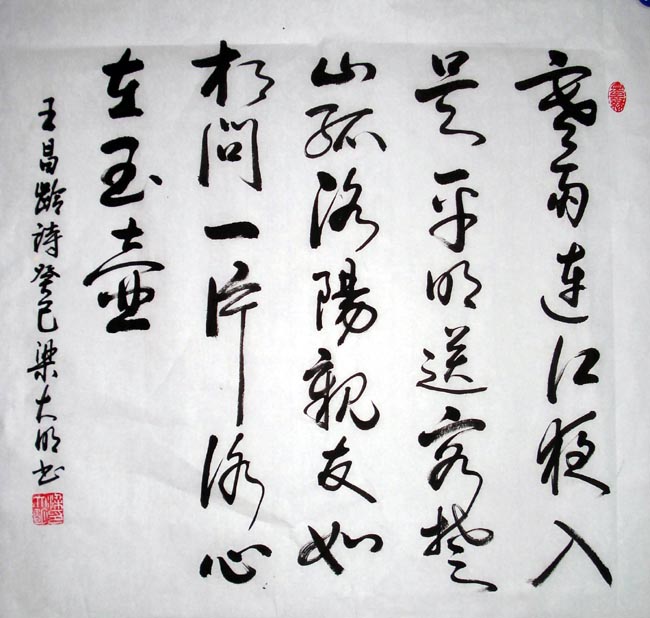 寒雨连江夜入
吴平明送客楚
山孤洛陽親友如
相问一片冰心
在玉壶
王昌龄詩癸巳梁大明书